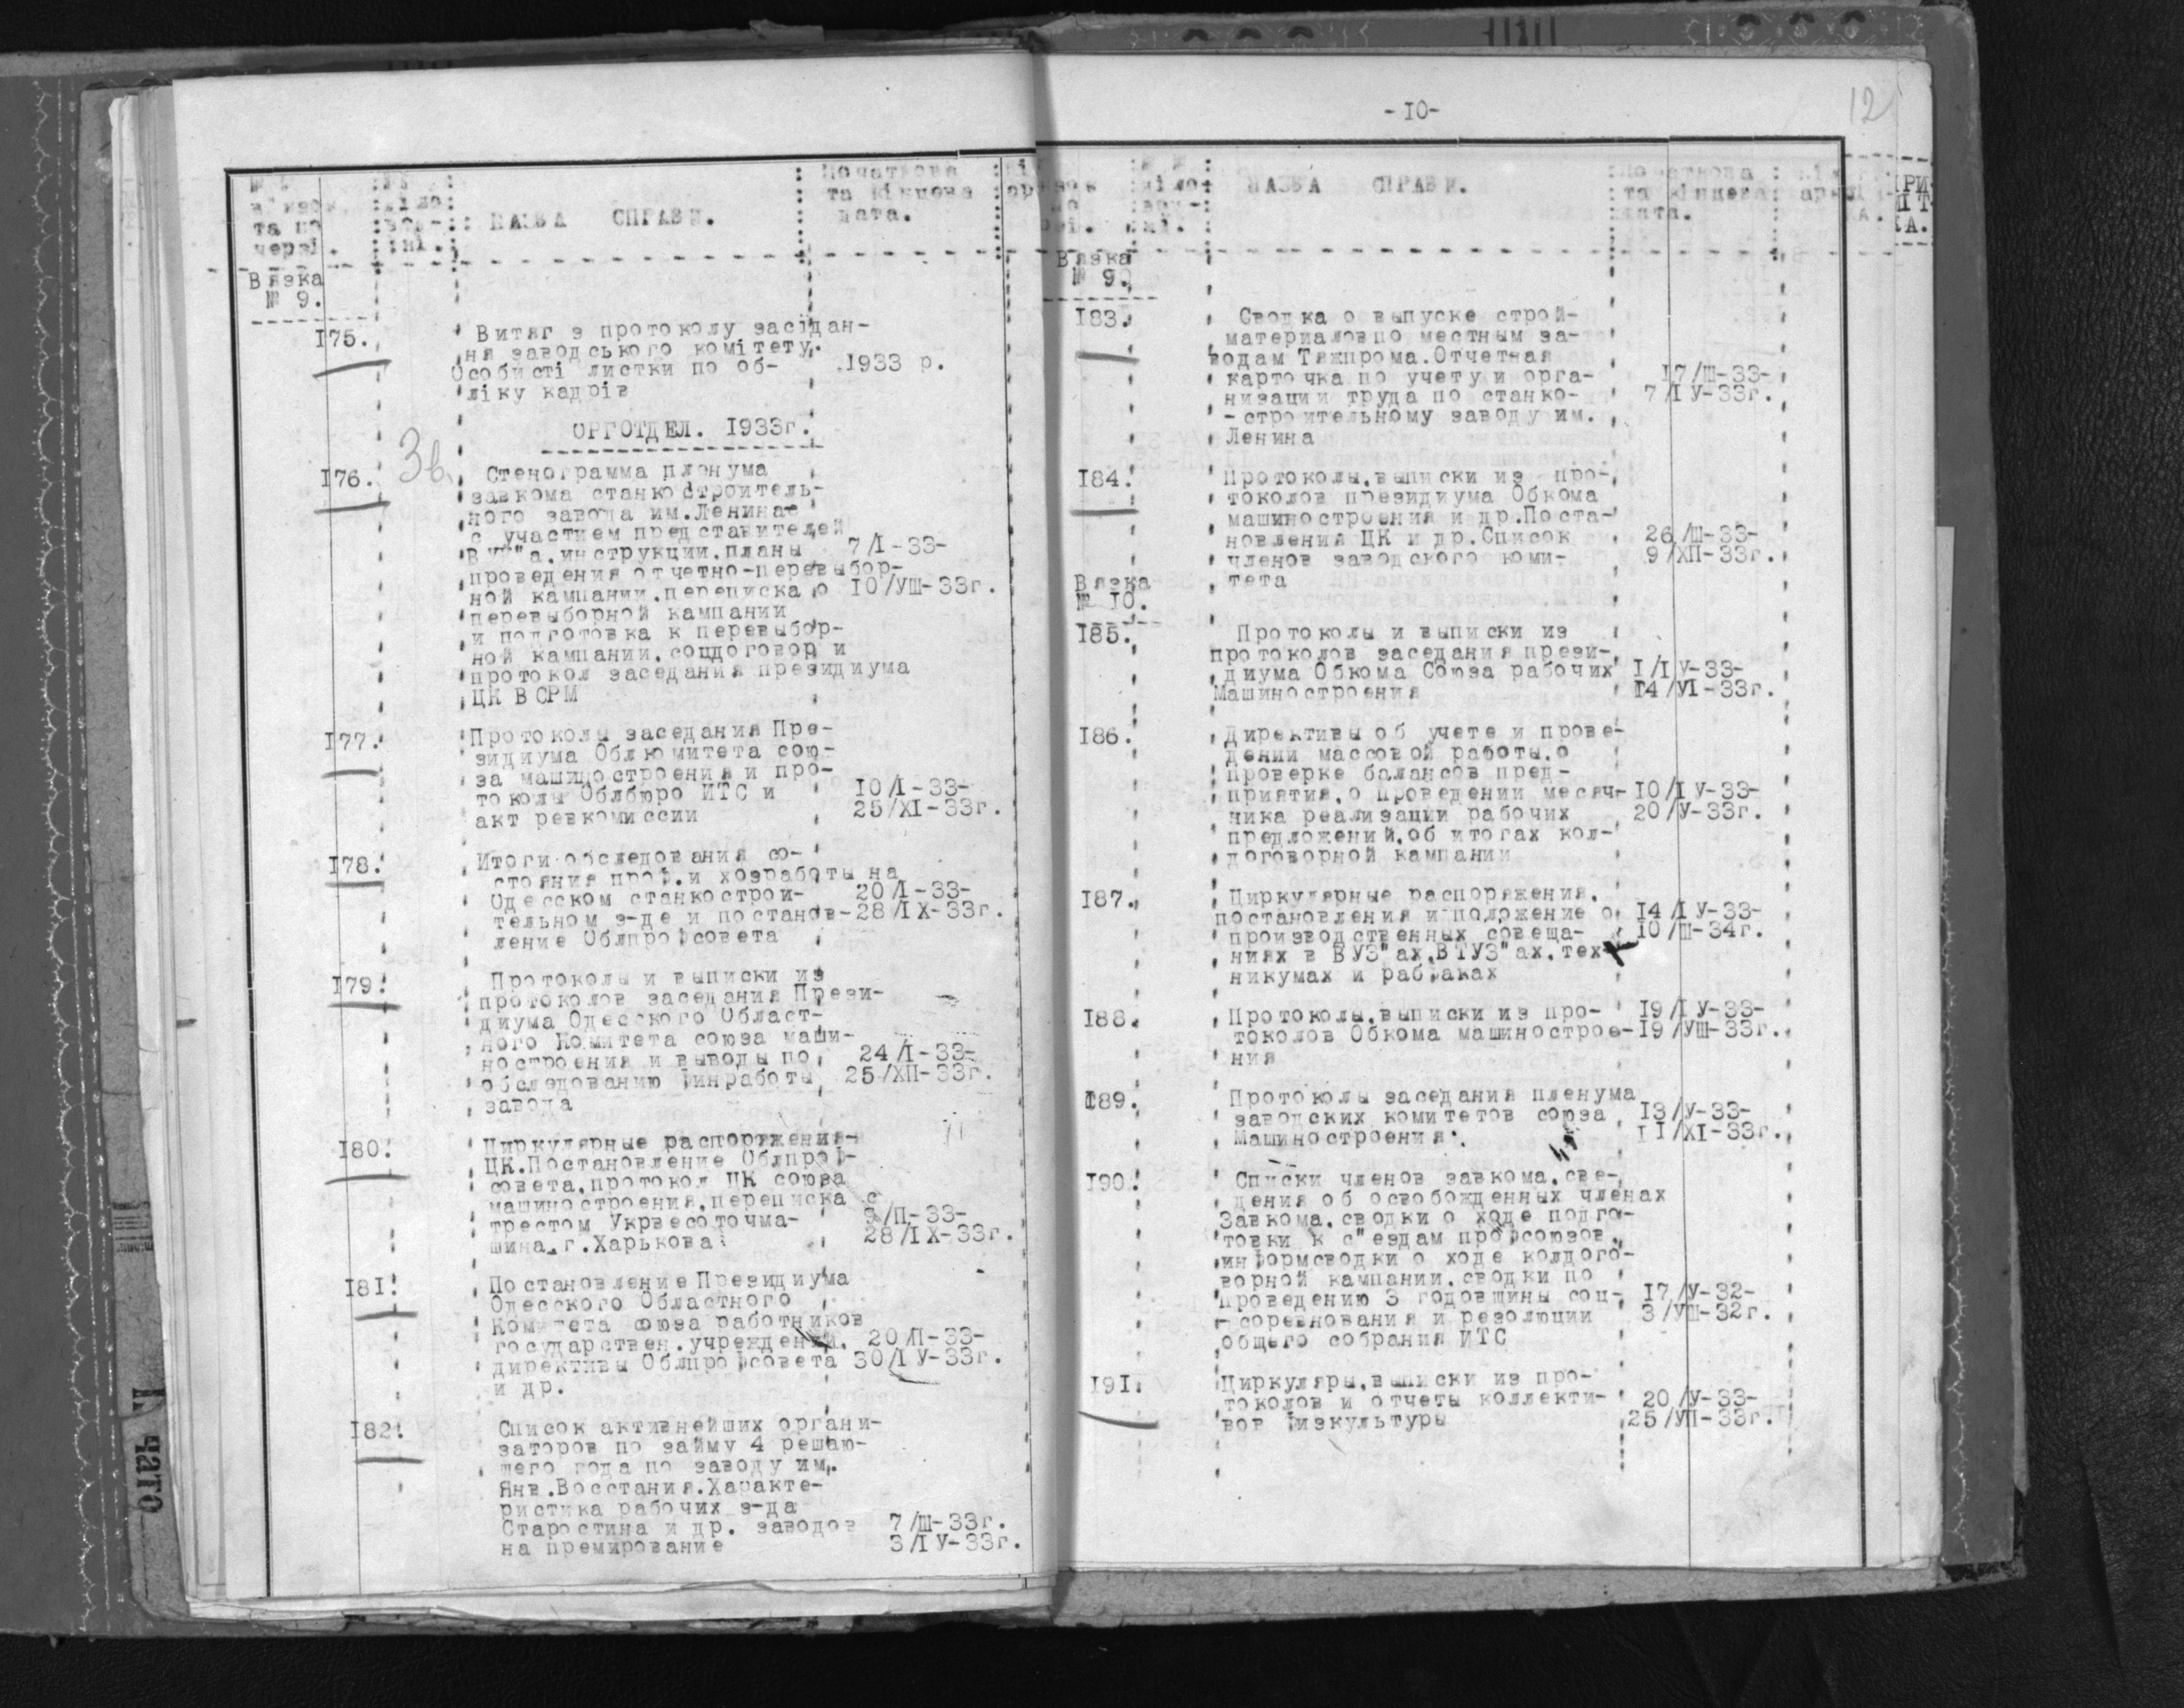 НАЗВА СПРАВИ.
Початкова
та кінцева
дата.
та по
черзі.
Вязка
№ 9.
175.
Витяг з протоколу засідан-
ня заводського комітету.
Особисті листки по об-
ліку кадрів
1933 р.
ОРГОТДЕЛ. 1933г.
176.
Зв.
Стенограмма пленума
завкома станкостроитель-
ного завода им.Ленина
с участием представителей
инструкции,планы
7/I-33-
проведения отчетно-перевыбор-
ной кампании,переписка о 10/УШ-33г.
перевыборной кампании
и подготовка к перевыбор-
ной кампании,соцдоговор и
протокол заседания президиума
ЦК ВСРМ
177.
Протоколы заседания Пре-
зидиума Облкомитета сою-
за машиностроения и про-
токолы Облбюро ИТС и 10/I-33-
акт ревкомиссии 25/XI-33г.
178.
Итоги обследования со-
стояния проф.и хозработы на
Одесском станкострои- 20/I-33-
тельном з-де и постанов-28/IX-33г.
ление Облпрофсовета
179.
Протоколы и выписки из
протоколов заседания Прези-
диума Одесского Област-
ного Комитета союза маши-
ностроения и выводы по 24/I-33-
обследованию финработы 25/ХП-33г.
завода
180.
Циркулярные распоряжения
ЦК.Постановление Облпроф-
совета,протокол ЦК союза
машиностроения,переписка с
трестом Укрвесоточма- /П-33-
шина г.Харькова 28/IX-33г.
181.
Постановление Президиума
Одесского Областного
Комитета союза работников
государствен.учреждений, 20/П-33-
директивы Облпрофсовета 30/IУ-33г.
и др.
182.
Список активнейших органи-
заторов по займу 4 решаю-
щего года по заводу им.
Янв.Восстания.Характе-
ристика рабочих з-да
Старостина и др. заводов 7/Ш-33г.
на премирование 3/IУ-33г.
-10-
12
НАЗВА СПРАВИ.
Початкова
та кінцева
дата.
Вязка
№ 9.
183.
Сводка о выпуске строй-
материаловпо местным за-
водам Тяжпрома.Отчетная
карточка по учету и орга- 17/Ш-33-
низации труда по станко- 7/IУ-33г.
-строительному заводу им.
Ленина
184.
Протоколы,выписки из про-
токолов президиума Обкома
машиностроения и др.Поста-
новления ЦК и др.Список 26/Ш-33-
членов заводского коми- 9/ХП-33г.
тета
Вязка
№ 10.
185.
Протоколы и выписки из
протоколов заседания прези-
диума Обкома Союза рабочих 1/IУ-33-
Машиностроения 14/УI-33г.
186.
Директивы об учете и прове-
дении массовой работы,о
проверке балансов пред-
приятия,о проведении месяч-10/IУ-33-
ника реализации рабочих 20/У-33г.
предложений,об итогах кол-
договорной кампании
187.
Циркулярные распоряжения,
постановления и положение о 14/IУ-33-
производственных совеща- 10/Ш-34г.
ниях в ВУЗ"ах,ВТУЗ"ах,тех-
никумах и рабфаках
188.
Протоколы,выписки из про- 19/IУ-33-
токолов Обкома машинострое-19/УШ-33г.
ния
189.
Протоколы заседания пленума
заводских комитетов союза 13/У-33-
Машиностроения. 11/XI-33г.
190.
Списки членов завкома,све-
дения об освобожденных членах
Завкома,сводки о ходе подго-
товки к с"ездам профсоюзов,
информсводки о ходе колдого-
ворной кампании,сводки по
проведению 3 годовщины соц- 17/У-32-
-соревнования и резолюции 3/УШ-32г.
общего собрания ИТС
191.
Циркуляры,выписки из про-
токолов и отчеты коллекти- 20/У-33-
вов физкультуры 25/УП-33г.